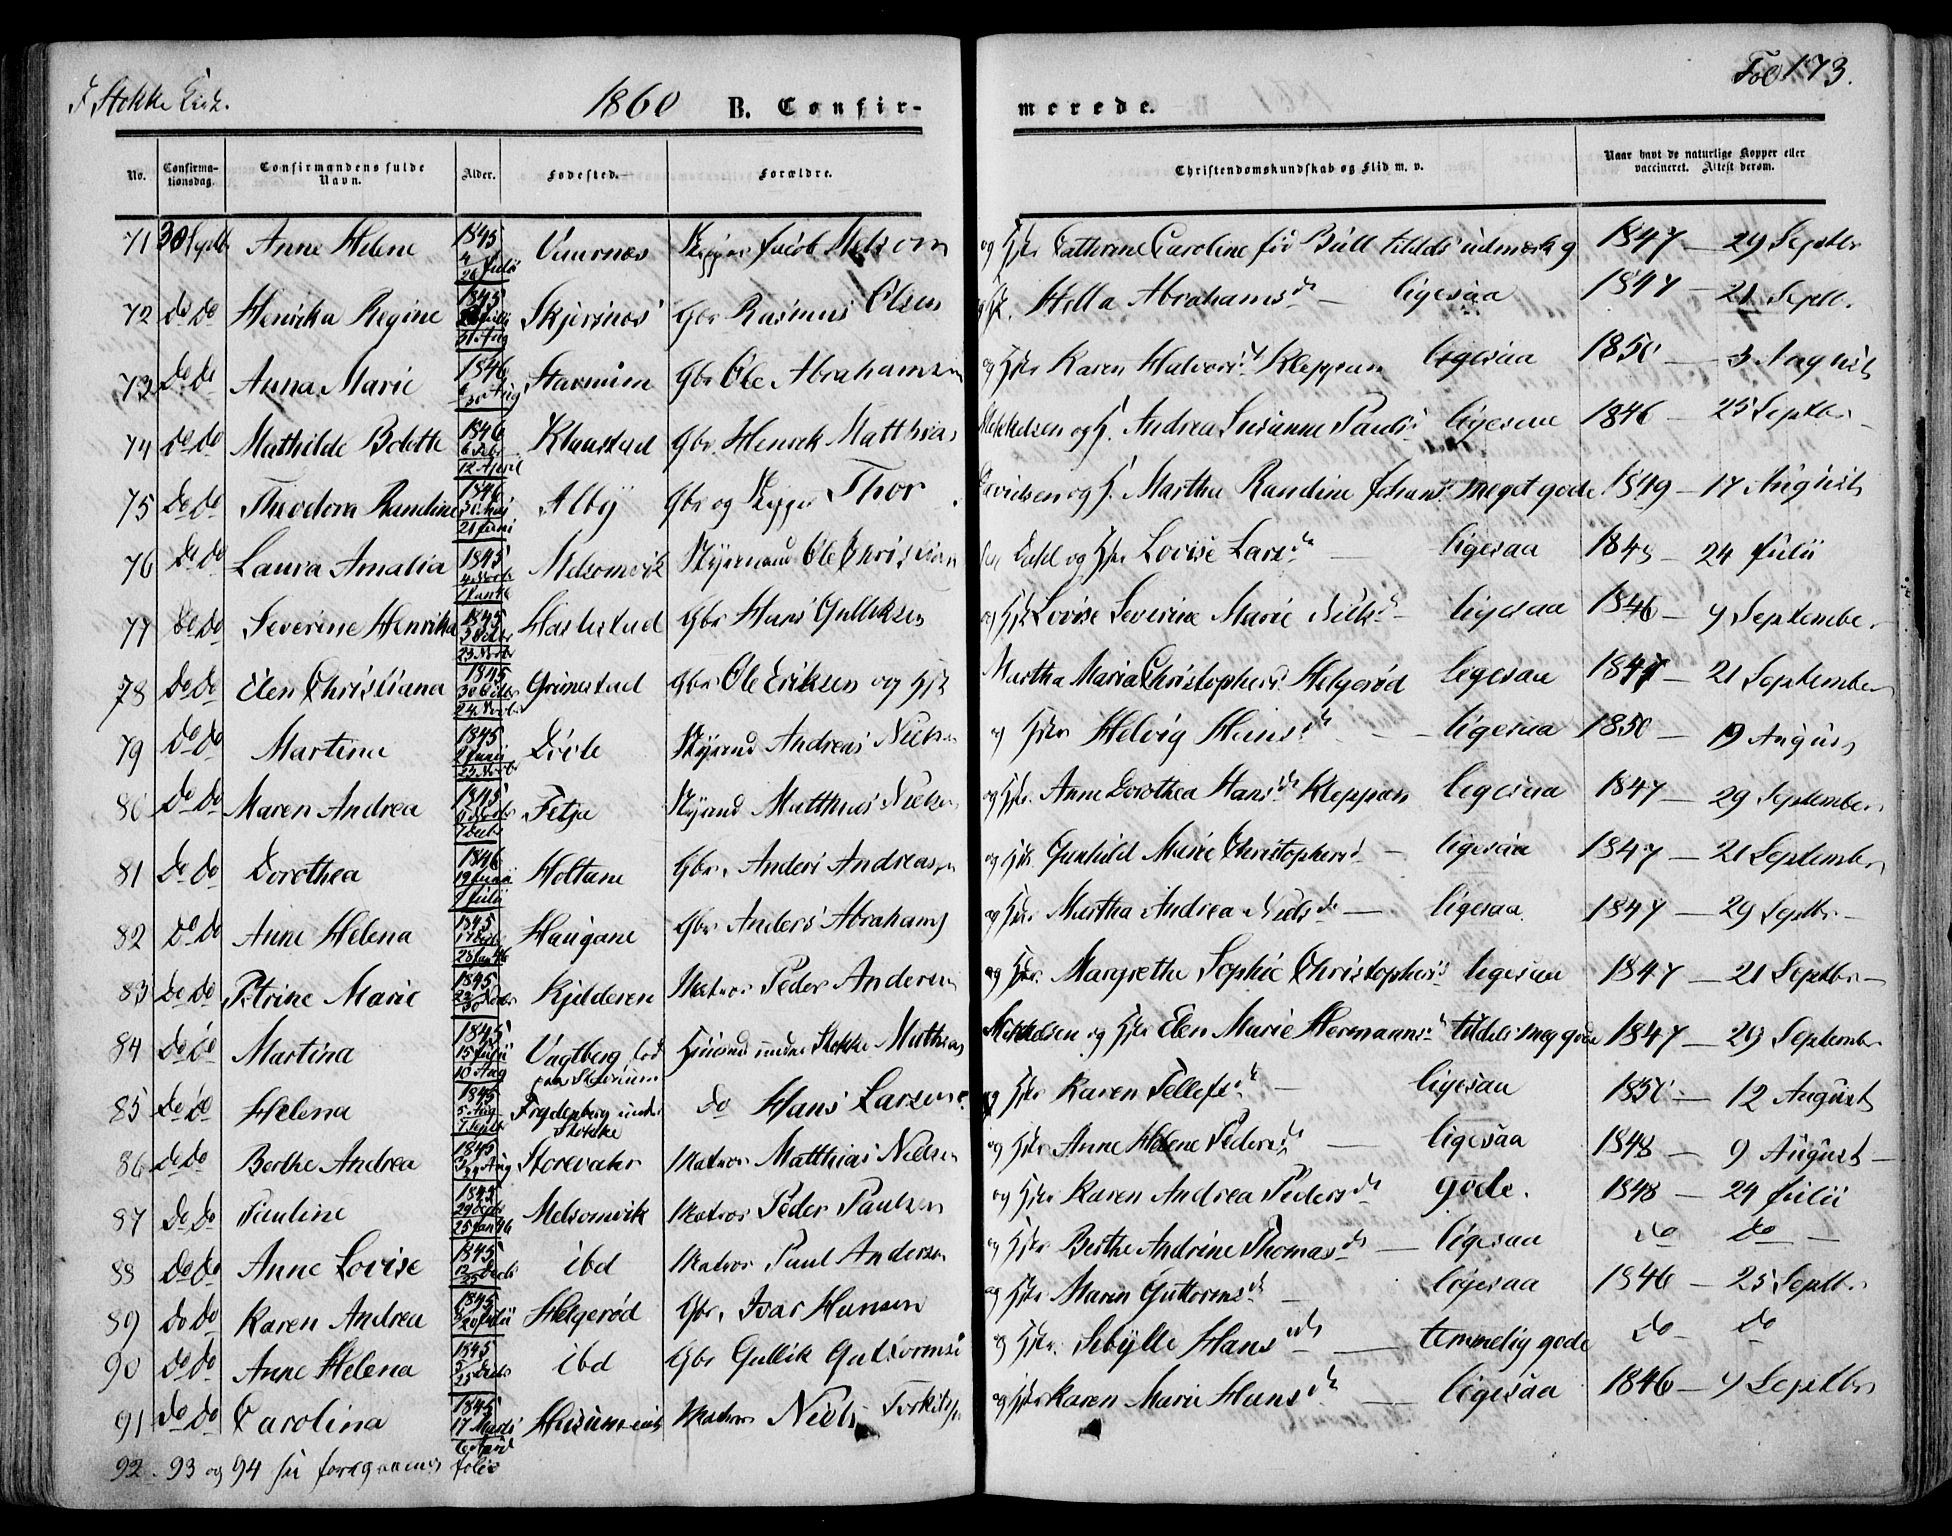 I Stokke Kirke. 1860 B. Confir- merede. Fol 173.
No. Confirma-tionsdag. Confirmandens fulde Navn. Alder. Fødested. Forældre. Christendomskundskab og Flid m. v. Naar havt de naturlige Kopper eller vaccineret. Attest derom.
71 30 Septb Anne Helene 1845 4/26 Julii Vaarnæs Skipper Jacob Melsom og Hstr Cathrine Caroline fød Bull tildels udmærk g 1847 — 29 Septbr
72 Do Do Henrika Regine 1845 31 Aug Skjersnæs Gbr Rasmus Olsen Stella Abrahamsd. — ligesaa 1847 — 21 Septb.
73 Do Do Anna Marie 1846 30 Aug Stannum Gbr Ole Abrahamsen og Hstr Karen Halvorsd. Kleppan ligesaa 1850 — 3 August
74 Do Do Mathilde Bolette 1846 6 Febr 12 April Klaastad Gbr. Henrik Matthias Mikkelsen og H. Andrea Susanne Paulsd. ligesaa 1846 — 25 Septbr
75 Do Do Theodora Randine 1846 30 Maj 21 Juni Alby Gbr og Skipper Thor Davidsen og H. Martha Randine Johansd. meget gode 1849 — 17 August
76 Do Do Laura Amalia 1845 4 Novbr Melsomvik Styrmand Ole Christian Dahl og Hstr Lovise Larsd. — ligesaa 1848 — 24 Julii
77 Do Do Severine Henrika 1845 23 Novbr Haslestad Gbr Hans Gulliksen og Hstr Lovise Severine Marie Nielsd. — ligesaa 1846 — 9 September
78 Do Do Elen Christiana 1845 30 Octbr 24 Novbr Grimestad Gbr Ole Eriksen og Hstr Martha Maria Christophersd. Helgerød ligesaa 1847 — 21 September
79 Do Do Martine 1845 23 Novbr Styrmd Andreas Nielsen og Hstr Helvig Hansd. — ligesaa 1850 — 19 August
80 Do Do Maren Andrea 1845 7 Decbr Fetja Styrmd Matthias Nielsen og Hstr. Anne Dorothea Hansd. Kleppan ligesaa 1847 — 29 September
81 Do Do Dorothea 1846 19 Juni Julii Holtane Gbr. Anders Andreassen og Hstr. Gunhild Marie Christophersd. — ligesaa 1847 — 21 September
82 Do Do Anne Helena 1845 28 Jan 46 Haugane Gbr Anders Abrahams og Hstr Martha Andrea Nielsd. — ligesaa. 1847 — 29 Septbr —
83 Do Do Petrine Marie 1845 Kjelderen Matros Peder Andersen og Hstr. Margrethe Sophie Christophersd. ligesaa 1847 — 21 Septbr —
84 Do Do Martina 1845 15 Julii 10 Aug Vagtberg under Stokke Matthias Mikkelsen og Hstr Elen Marie Hermannsd. tildels meg gode 1847 — 29 September
85 Do Do Helena 1845 5 Aug 7 Septbr Frydenberg under Stokke do Hans Larsen og Hstr Karen Tellefsd. — ligesaa 1850 — 12 August
86 Do Do Berthe Andrea 1845 Aug Storevahr Matros Matthias Nielsen og Hstr Anne Helene Pedersd. — ligesaa 1848 — 9 August —
87 Do Do Pauline 1845 25 Jan 46 Melsomvik Matros Peder Paulsen og Hstr Karen Andrea Pedersd. gode. 1848 — 24 Julii
88 Do Do Anne Lovise 1845 Decb ibd Matros Paul Andersen og Hstr Berthe Andrine Thomasd. — ligesaa do do —
89 Do Do Karen Andrea 1845 20 Julii Helgerød Gbr. Ivar Hansen og Hstr Maren Guttormsd. — ligesaa 1846 — 25 Septbr
90 Do Do Anne Helena 1845 5/25 Decbr ibd Gbr Gullik Guttormsen og Hstr. Sibylle Hansd. — temmelig gode do — do
91 Do Do Carolina 1845 17 Marts 6 April Matros Niels Terkelsen og Hstr Karen Marie Hansd. — ligesaa 1846 — 9 Septbr
92. 93 og 94 se foregaaende folio